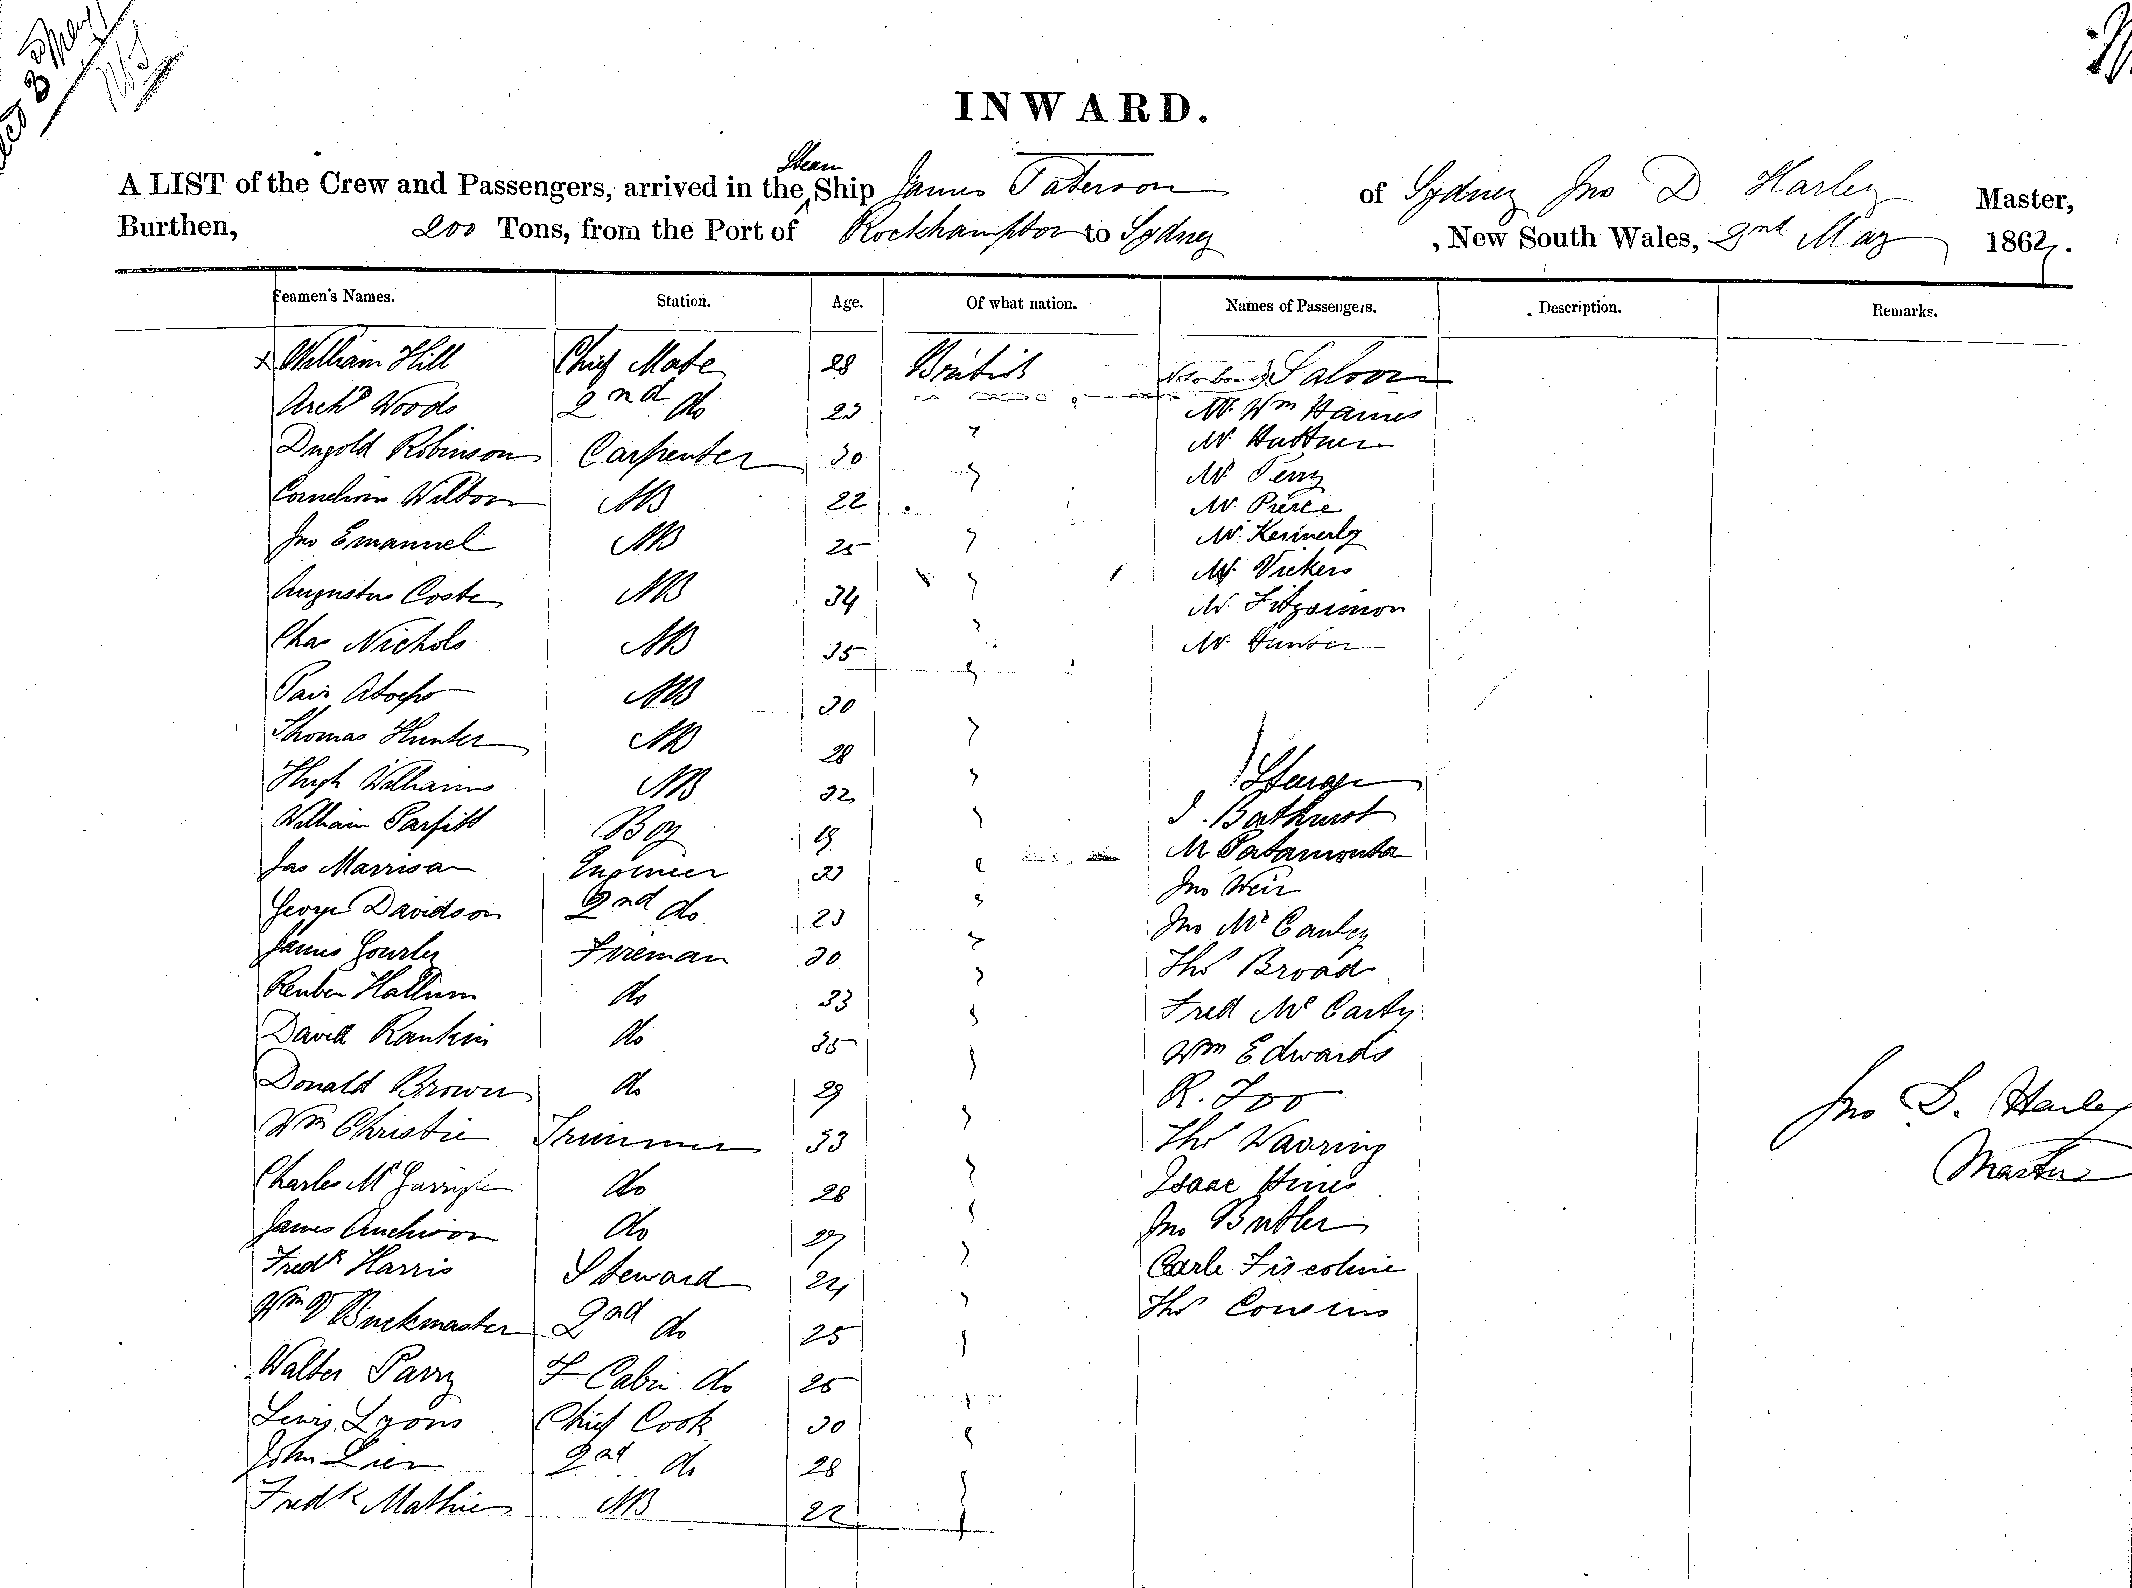 3 May
INWARD.
A LIST of the Crew and Passengers, arrived in the Steam Ship James Paterson of Sydney Jno D Harley Master,
Burthen, 200 Tons, from the Port of Rockhampton to Sydney , New South Wales, 2nd May 1867.
Seamen's Names. Station. Age. Of what nation. Names of Passengers. Description. Remarks.
William Hill Chief Mate 28 British Saloon
Archd Woods 2nd do 23 Mr Wm Haines
Dugold Robinson Carpenter 30 Mr Huttner
Wilson AB 22 Mr Perry
Mr Pierce
Jno Emanuel AB 25 Mr Kennerly
Augustus Coste AB 34 Mr Vickers
Mr Fitzsimon
Chas Nichols AB 35 Mr Hunter
AB 30
Thomas Hunter AB 28
Hugh Williams AB 32 Steerage
William Parfitt Boy 19 J. Bathurst
Jas Marrison Engineer 33 M
George Davidson 2nd do 23 Jno Weir
Jno McCauley
James Gourley Fireman 30 Thos Broad
Reuben Hallum do 33 Fred McCarty
David Rankin do 35 Wm Edwards
Donald Brown do 29 R. Foo
Jno D. Harley
Wm Christie Trimmer 33 Thos Warring
Master
Charles McGarrigle do 28 Isaac Hines
James do 27 Jno Butler
Fredk Harris Steward 24 Carle Fiscoline
Wm V Buckmaster 2nd do 25 Thos Cousins
Walter Parry F Cabin do 25
Lewis Lyons Chief Cook 30
John Lien 2nd do 28
Fredk Mathie AB 22